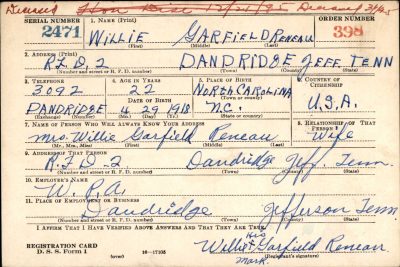 Deceased
SERIAL NUMBER 1. NAME (Print) ORDER NUMBER
2471 WILLIE GARFIELD RENEAU 398
(First) (Middle) (Last)
2. ADDRESS (Print)
R.F.D. 2 DANDRIDGE JEFF. TENN
(Number and street or R. F. D. number) (Town) (County) (State)
3. TELEPHONE 4. AGE IN YEARS 5. PLACE OF BIRTH 6. COUNTRY OF CITIZENSHIP
3092 22 NORTH CAROLINA
DATE OF BIRTH (Town or county)
DANDRIDGE 4 29 1918 N.C. U.S.A.
(Exchange) (Number) (Mo.) (Day) (Yr.) (State or country)
7. NAME OF PERSON WHO WILL ALWAYS KNOW YOUR ADDRESS 8. RELATIONSHIP OF THAT PERSON
Mrs. Willie Garfield Reneau Wife
(Mr., Mrs., Miss) (First) (Middle) (Last)
9. ADDRESS OF THAT PERSON
R.F.D-2 Dandridge Jeff. Tenn.
(Number and street or R. F. D. number) (Town) (County) (State)
10. EMPLOYER'S NAME
W. P. A.
11. PLACE OF EMPLOYMENT OR BUSINESS
Dandridge Jefferson Tenn.
(Number and street or R. F. D. number) (Town) (County) (State)
I AFFIRM THAT I HAVE VERIFIED ABOVE ANSWERS AND THAT THEY ARE TRUE.
REGISTRATION CARD
D. S. S. Form 1 16—17105
His
Willie + Garfield Reneau
Mark (Registrant's signature)